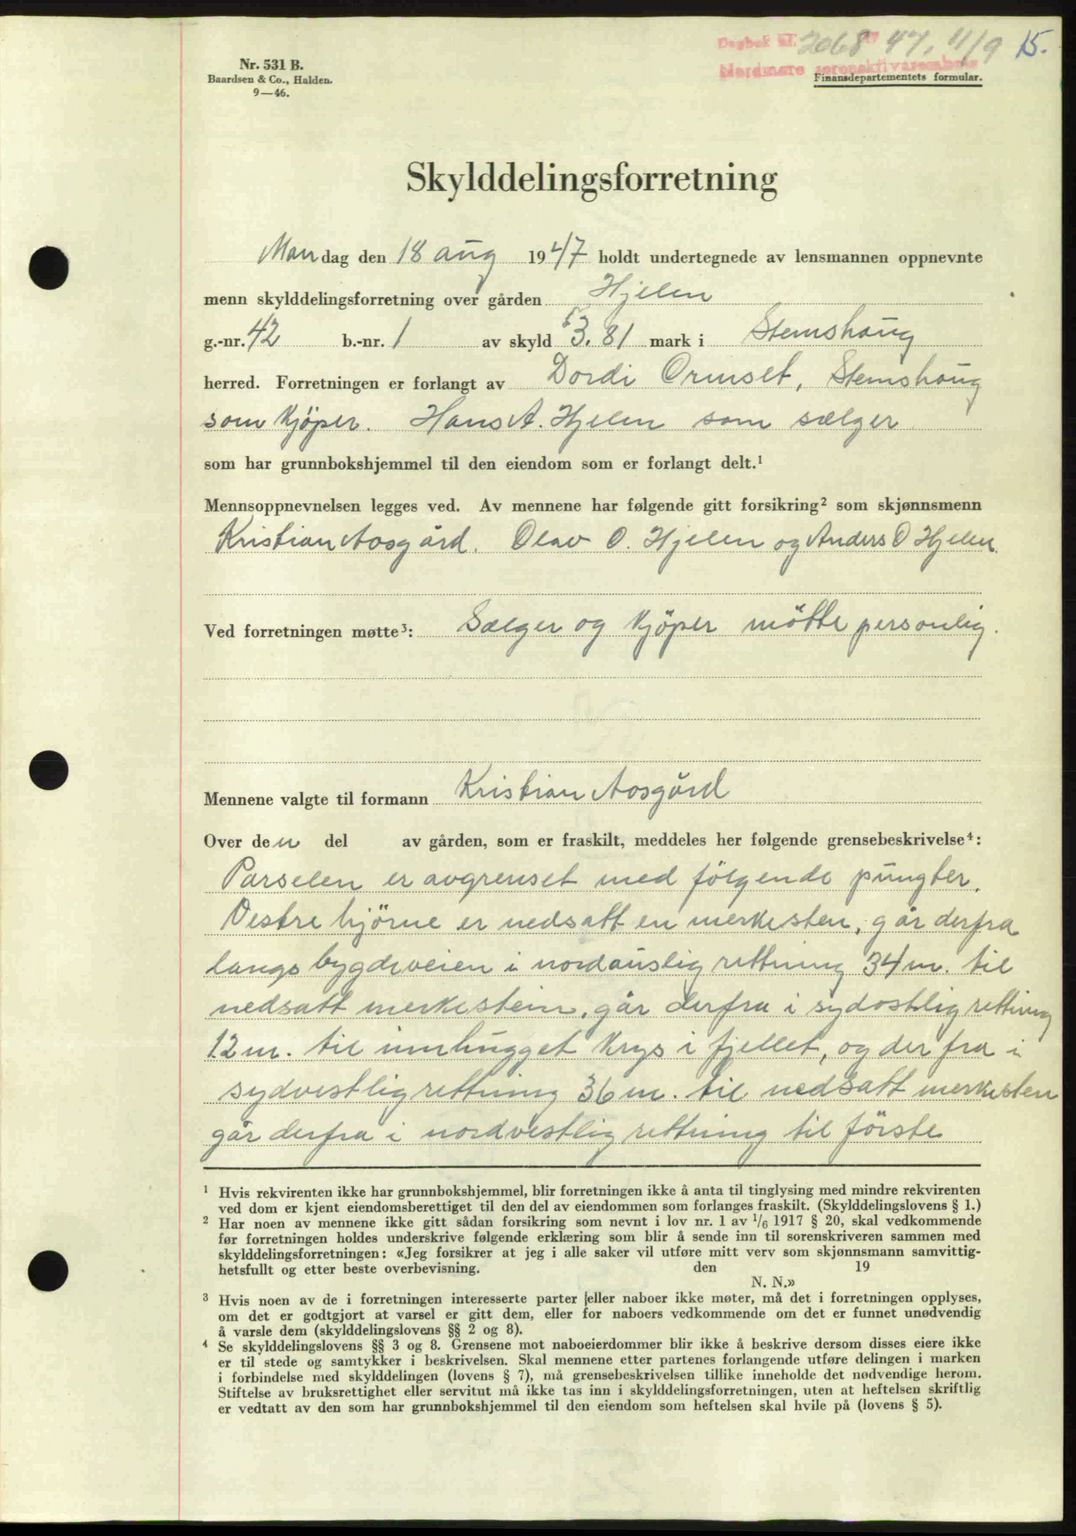 Dagbok nr. 2068 19 47, 11/9 15.
Nordmøre sorenskriverembete
Nr. 531 B.
Baardsen & Co., Halden.
9—46.
Finansdepartementets formular.
Skylddelingsforretning
Mandag den 18 aug 1947 holdt undertegnede av lensmannen oppnevnte
menn skylddelingsforretning over gården Hjelen
g.-nr. 42 b.-nr. 1 av skyld 3.81 mark i Stemshaug
herred. Forretningen er forlangt av Dordi Ormset, Stemshaug
som Kjöper. Hans A. Hjelen som sælger
som har grunnbokshjemmel til den eiendom som er forlangt delt.¹
Mennsoppnevnelsen legges ved. Av mennene har følgende gitt forsikring² som skjønnsmenn
Kristian Aosgård. Olav O. Hjelen og Anders O Hjelen.
Ved forretningen møtte³: Sælger og Kjöper mötte personlig.
Mennene valgte til formann Kristian Aosgård
Over den del av gården, som er fraskilt, meddeles her følgende grensebeskrivelse⁴:
Parselen er avgrenset med följgende pungter.
Vestre hjörne er nedsatt en merkesten, går derfra
langs bygdeveien i nordauslig rettning 34 m. til
nedsatt merkestein, går derfra i sydostlig rettning
12 m. til innhugget Krys i fjellet, og der fra i
sydvestlig rettning 36 m. til nedsatt merkesten
går derfra i nordvestlig rettning til förste
¹ Hvis rekvirenten ikke har grunnbokshjemmel, blir forretningen ikke å anta til tinglysing med mindre rekvirenten
ved dom er kjent eiendomsberettiget til den del av eiendommen som forlanges fraskilt. (Skylddelingslovens § 1.)
² Har noen av mennene ikke gitt sådan forsikring som nevnt i lov nr. 1 av 1/6 1917 § 20, skal vedkommende
før forretningen holdes underskrive følgende erklæring som blir å sende inn til sorenskriveren sammen med
skylddelingsforretningen: «Jeg forsikrer at jeg i alle saker vil utføre mitt verv som skjønnsmann samvittig-
hetsfullt og etter beste overbevisning. den 19
N. N.»
³ Hvis noen av de i forretningen interesserte parter eller naboer ikke møter, må det i forretningen opplyses,
om det er godtgjort at varsel er gitt dem, eller for naboers vedkommende om det er funnet unødvendig
å varsle dem (skylddelingslovens §§ 2 og 8).
⁴ Se skylddelingslovens §§ 3 og 8. Grensene mot naboeierdommer blir ikke å beskrive dersom disses eiere ikke
er til stede og samtykker i beskrivelsen. Skal mennene etter partenes forlangende utføre delingen i marken
i forbindelse med skylddelingen (lovens § 7), må grensebeskrivelsen tillike inneholde det nødvendige herom.
Stiftelse av bruksrettighet eller servitut må ikke tas inn i skylddelingsforretningen, uten at heftelsen skriftlig
er vedtatt av den som har grunnbokshjemmel til den eiendom som heftelsen skal hvile på (lovens § 5).